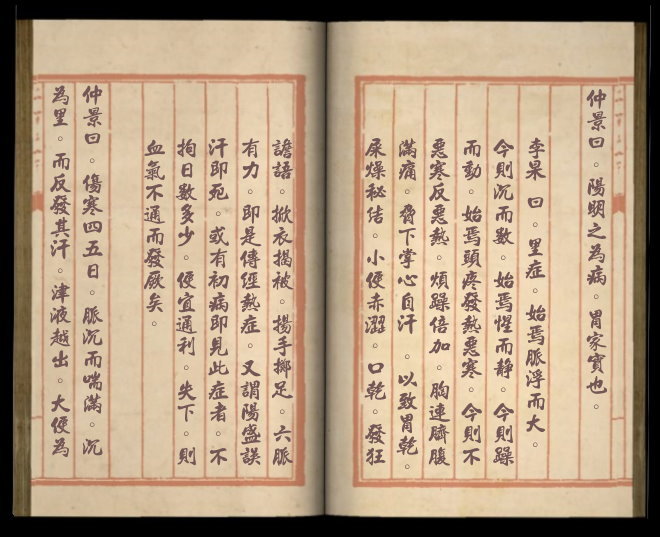 仲景曰。陽明之為病。胃家實也。
李杲曰。里症。始焉脈浮而大。
今則沉而數。始焉惺而静。今則躁
而動。始焉頭疼發熱惡寒。今則不
惡寒反惡熱。煩躁倍加。胸連臍腹
滿痛。脅下掌心自汗。以致胃乾。
屎燥秘结。小便赤澀。口乾。發狂
譫語。掀衣揭被。揚手擲足。六脈
有力。即是傳經熱症。又謂陽盛誤
汗即死。或有初病即見此症者。不
拘日數多少。便宜通利。失下。則
血氣不通而發厥矣。
仲景曰。傷寒四五日。脈沉而喘滿。沉
為里。而反發其汗。津液越出。大便為